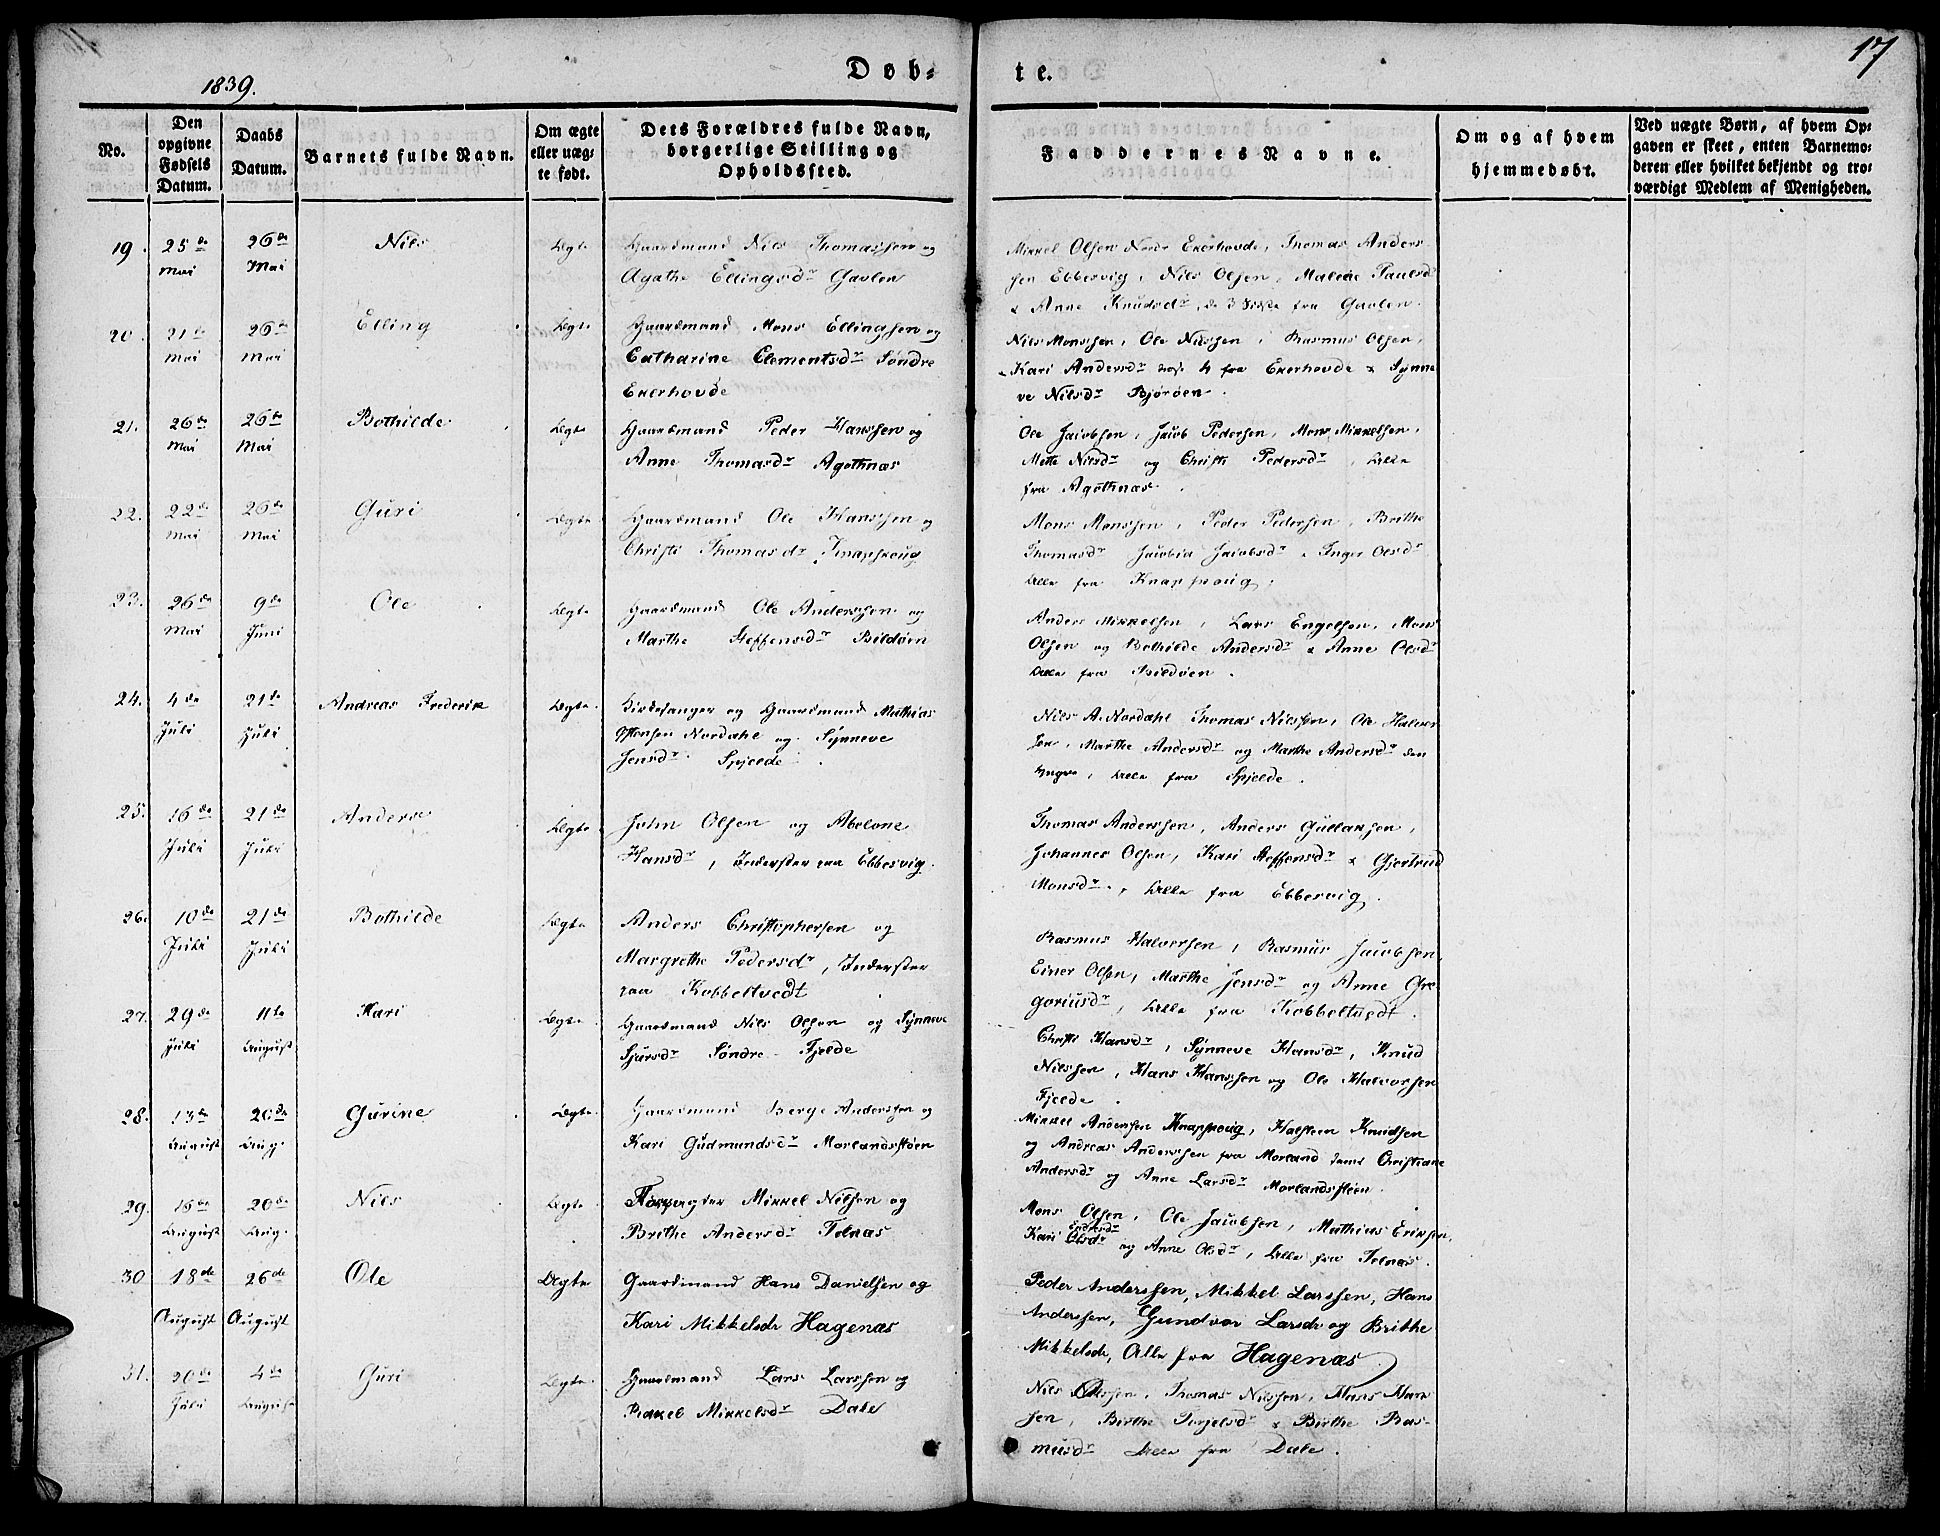 1839.
Døb=
te.
17
No.
Den opgivne Fødsels Datum.
Daabs Datum.
Barnets fulde Navn.
Om ægte eller uægte født.
Dets Forældres fulde Navn, borgerlige Stilling og Opholdssted.
Faddernes Navne.
Om og af hvem hjemmedøbt.
Ved uægte Børn, af hvem Opgaven er skeet, enten Barnemoderen eller hvilket bekjendt og troværdigt Medlem af Menigheden.
19. 25de Mai 26de Mai Nils Ægte
Gaardmand Nils Thomassen og
Agathe Ellingsdr Gavlen
Mikkel Olsen Nordr Ekerhovde, Thomas Anders
sen Ebbesvig, Nils Olsen, Malene Paulsd
& Anne Knudsdr, de 3 sidste fra Gavlen.
20. 21de Mai 26de Mai Elling Ægte
Gaardmand Mons Ellingsen og
Catharine Clementsdr Søndre
Ekerhovde
Nils Monssen, Ole Nilssen, Rasmus Olsen,
Kari Andersdr 4 fra Ekerhovde & Synne
ve Nilsdr Bjørøen.
21. 26de Mai 26de Mai Bothilde Ægte
Gaardmand Peder Hanssen og
Anne Thomasdr Agothnæs
Ole Jacobsen, Jacob Pedersen, Mons Mikkelsen,
Mette Nilsdr og Christi Pedersdr, Alle
fra Agothnæs.
22. 22de Mai 26de Mai Guri Ægte
Gaardmand Ole Hanssen og
Christi Thomasdr Knapskoug
Mons Monssen, Peder Pedersen, Brithe
Thomasdr Jacobia Jacobsdr & Inger Olsdr
Alle fra Knapskoug.
23. 26de Mai 9de Juni Ole Ægte
Gaardmand Ole Anderssen og
Marthe Steffensdr Bildøen
Anders Mikkelsen, Lars Engelsen, Mons
Olsen og Bothilde Andersdr & Anne Olsdr
Alle fra Bildøen.
24. 4de Juli 21de Juli Andreas Frederik Ægte
Kirkesanger og Gaardmand Mathias
Monsen Nordahl og Synneve
Jensdr Spjelde.
Nils A. Nordahl Thomas Nilssen, Ole Halvor
sen, Marthe Andersdr og Marthe Andersdr den
yngre, Alle fra Spjelde.
25. 16de Juli 21de Juli Anders Ægte
John Olsen og Abelone
Hansdr, Inderster paa Ebbesvig.
Thomas Anderssen, Anders Gullaksen,
Johannes Olsen, Kari Steffensdr & Gjertrud
Monsdr, Alle fra Ebbesvig.
26. 10de Juli 21de Juli Bothilde Ægte
Anders Christophersen og
Margrethe Pedersdr, Inderster
paa Kobbeltvedt
Rasmus Halvorsen, Rasmus Jacobsen,
Einer Olsen, Marthe Jensdr og Anne Gre
goriusdr, Alle fra Kobbeltvedt.
27. 29de Juli 11te August Kari Ægte
Gaardmand Nils Olsen og Synneve
Sjursdr Søndre Fjelde
Christi Hansdr, Synneve Hansdr, Knud
Nilssen, Hans Hanssen og Ole Halvorsen
Fjelde.
28. 13de August 20de Aug. Gurine Ægte
Gaardmand Berge Anderssen og
Kari Gudmundsdr Morlandsstøen
Mikkel Anderssen Knapskoug, Halsteen Knudsen
og Andreas Anderssen fra Morland samt Christiane
Andersdr og Anne Larsdr Morlandsstøen.
29. 15de August 20de Aug. Nils Ægte
Forpagter Mikkel Nilsen og
Brithe Andersdr Telnæs
Mons Olsen, Ole Jacobsen, Mathias Eriksen,
Kari Olsdr Endresdr og Anne Olsdr, Alle fra Telnæs.
30 18de August 26de August Ole Ægte
Gaardmand Hans Danielsen og
Kari Mikkelsdr Hagenæs
Peder Anderssen, Mikkel Larssen, Hans
Anderssen, Gundvor Larsdr og Brithe
Mikkelsdr, Alle fra Hagenæs.
31. 20de Juli 4de August Guri Ægte
Gaardmand Lars Larssen og
Rakkel Mikkelsdr Dale
Nils Olssen, Thomas Nilssen, Hans Hans
sen, Birthe Torjelsdr & Birthe Ras-
musdr Alle fra Dale.